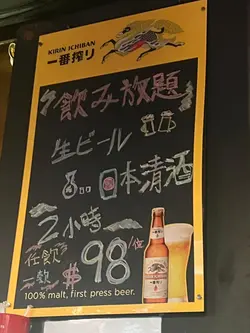 KIRIN ICHIBAN
一番搾り
飲み放題
生ビール
日本清酒
2小時
任飲
$98/位
100% malt, first press beer.